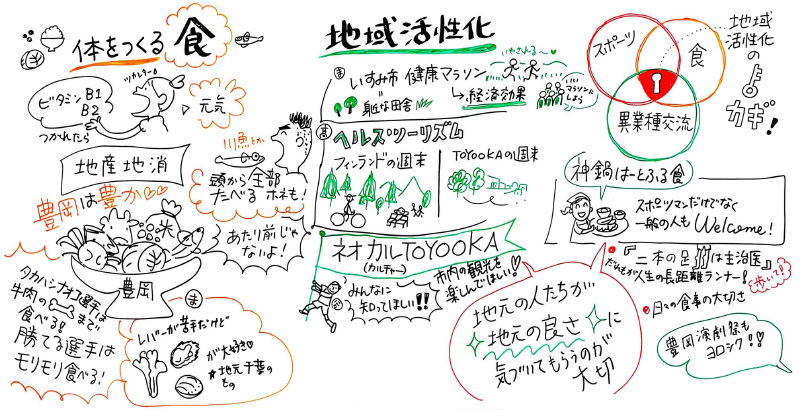 体をつくる 食
ツカレター
ビタミンB1
B2
つかれたら
元気
地産地消
豊岡は豊か♡♡
川魚とか
頭から全部
たべる ホネも!
あたり前じゃ
ないよ!
米
豊岡
タカハシナオコ選手は
牛肉の
まで
食べる!!
勝てる選手は
モリモリ食べる!
ま
レバーが苦手だけど
が大好き♡
★地元千葉の
もの
地域活性化
いやされる〜
ま
いすみ市 健康マラソン
身近な田舎
→経済効果
いいマラソンに
しよう
ヘルス・ツーリズム
フィンランドの週末
TOYOOKAの週末
ネオカルTOYOOKA
(カルチャー)
みんなに
知ってほしい!!
市内の観光を
楽しんでほしい!
スポーツ
食
異業種交流
地域
活性化
の
カギ!
神鍋はーとふる食
スポーツマンだけでなく
一般の人も Welcome!
『二本の足は主治医』
だれもが人生の長距離ランナー!
歩いて!
日々の食事の大切さ
地元の人たちが
地元の良さに
気づいてもらうのが
大切
豊岡演劇祭も
ヨロシク!!♡